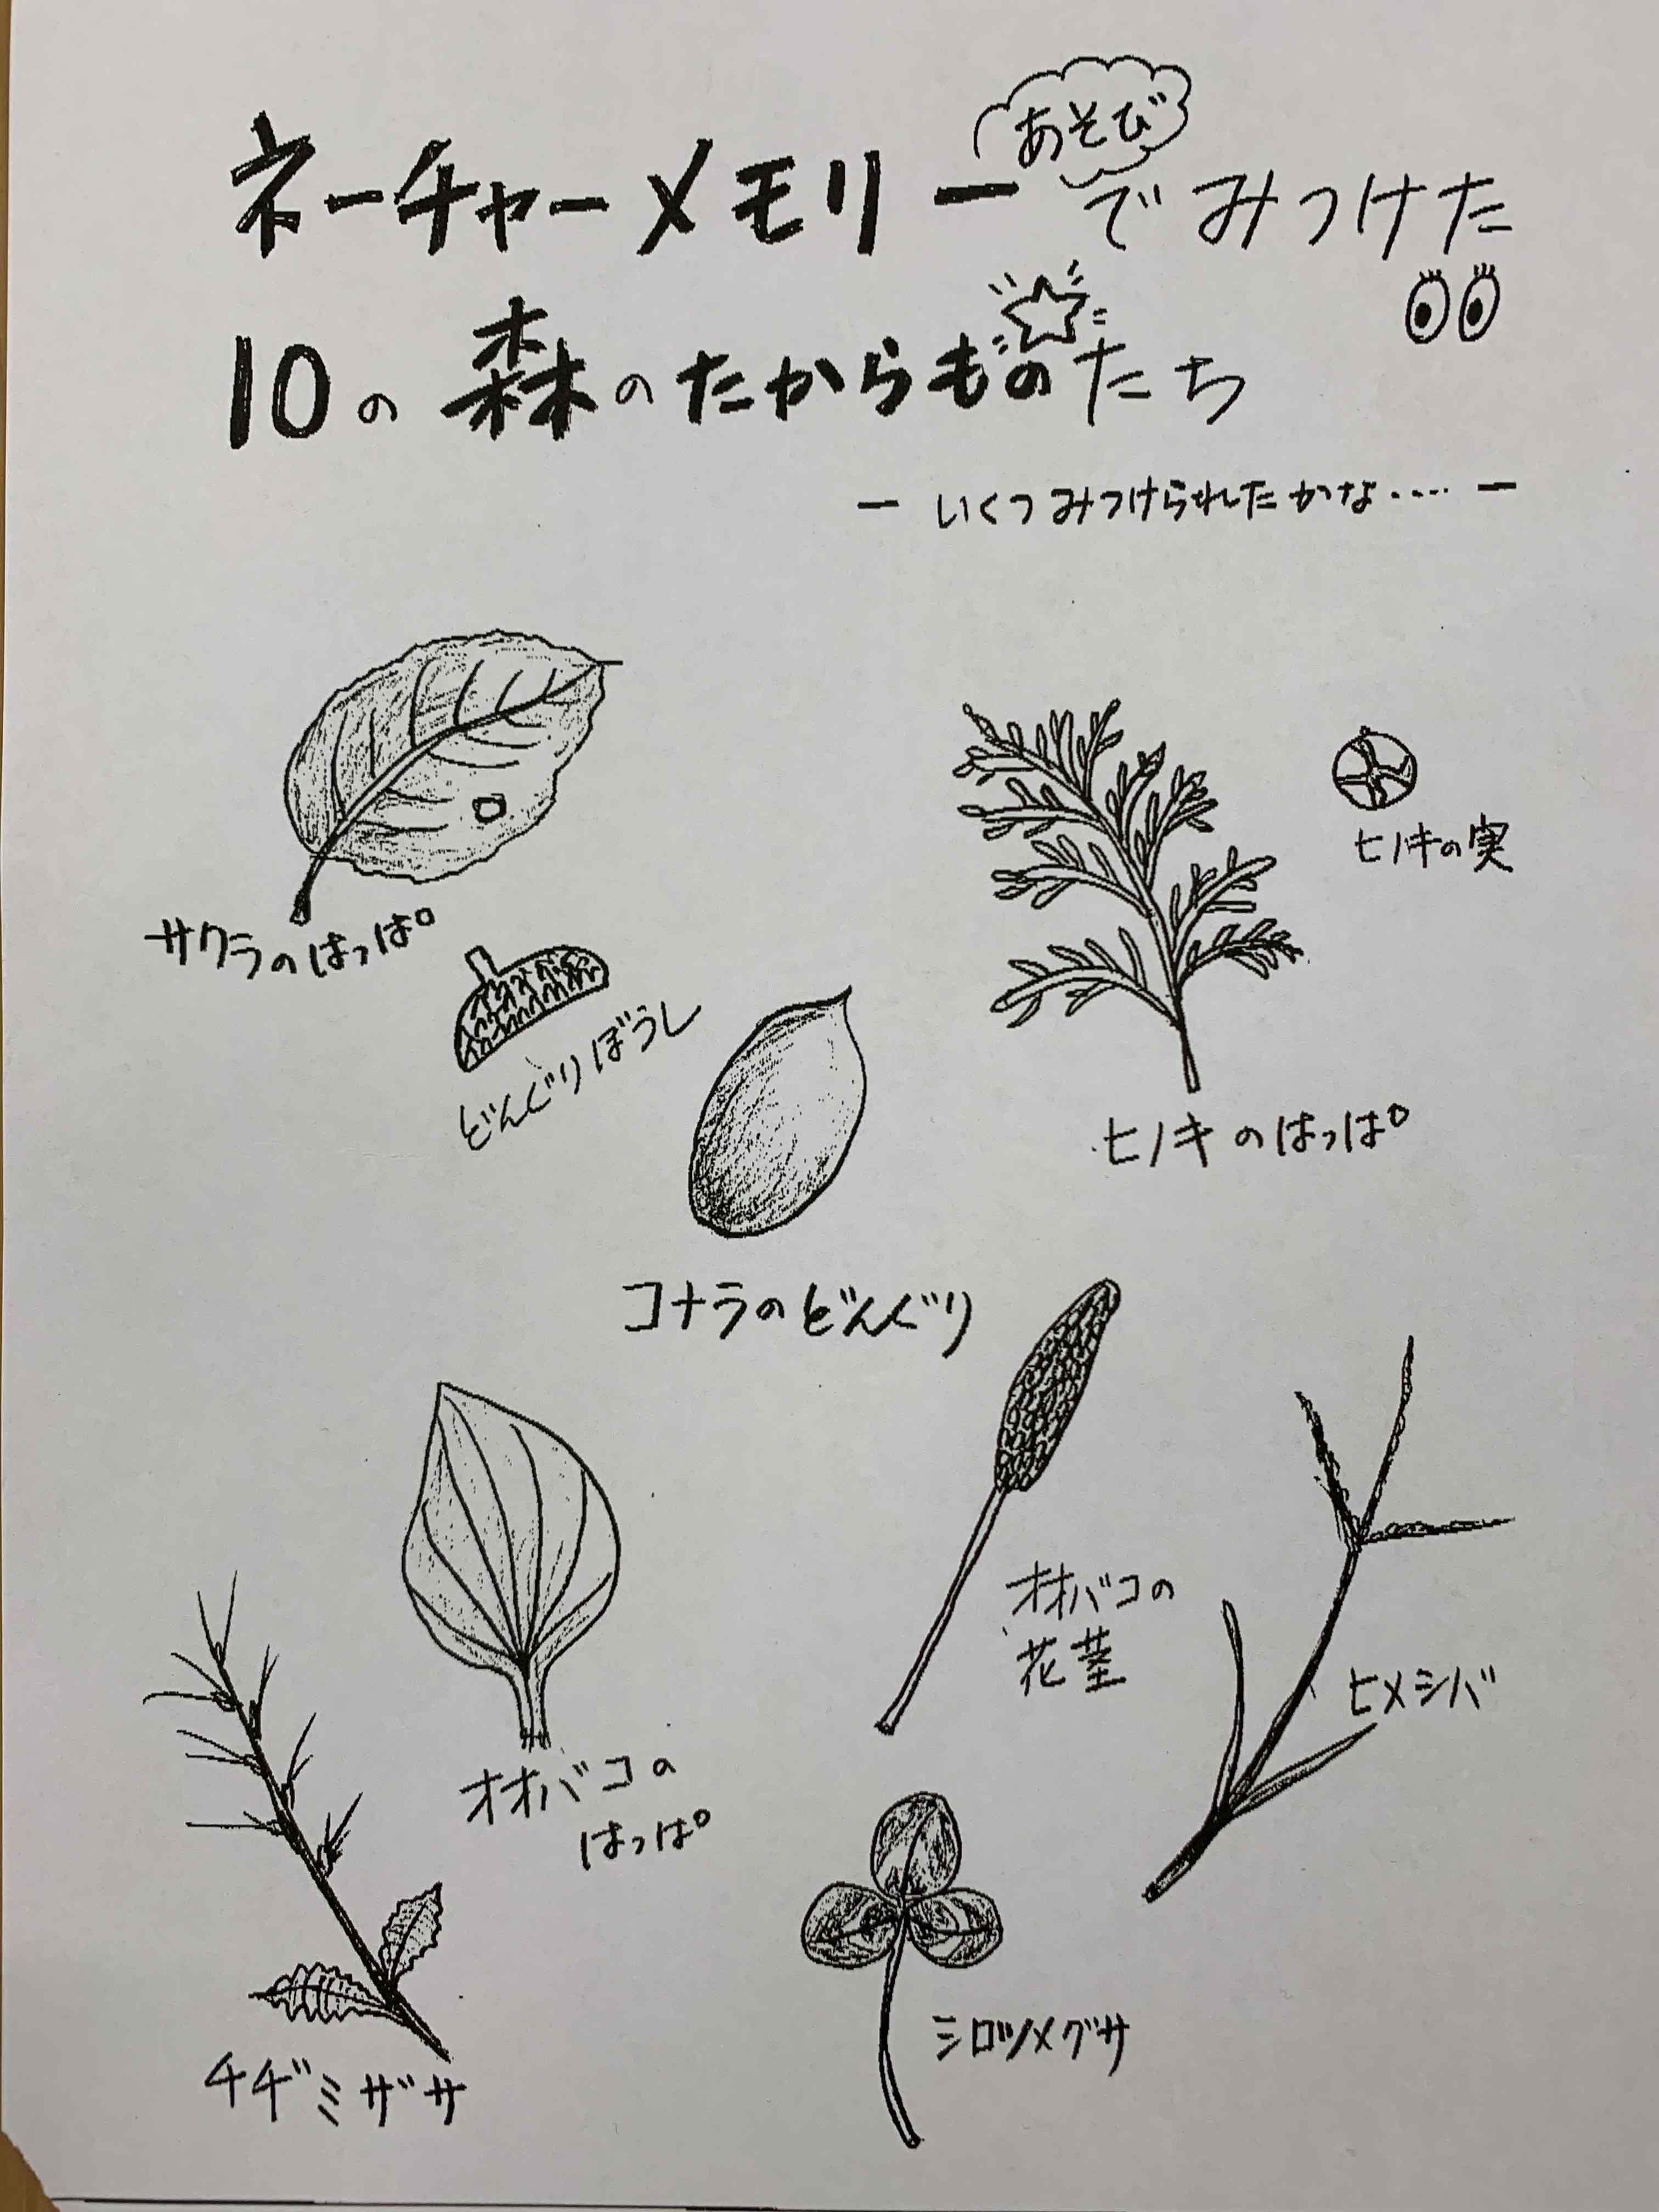 あそび
ネーチャーメモリーでみつけた
10の森のたからものたち
ー いくつみつけられたかな‥‥ ー
サクラのはっぱ
ヒノキの実
どんぐりぼうし
ヒノキのはっぱ
コナラのどんぐり
オオバコの
花茎
ヒメシバ
オオバコの
はっぱ
シロツメグサ
チヂミザサ